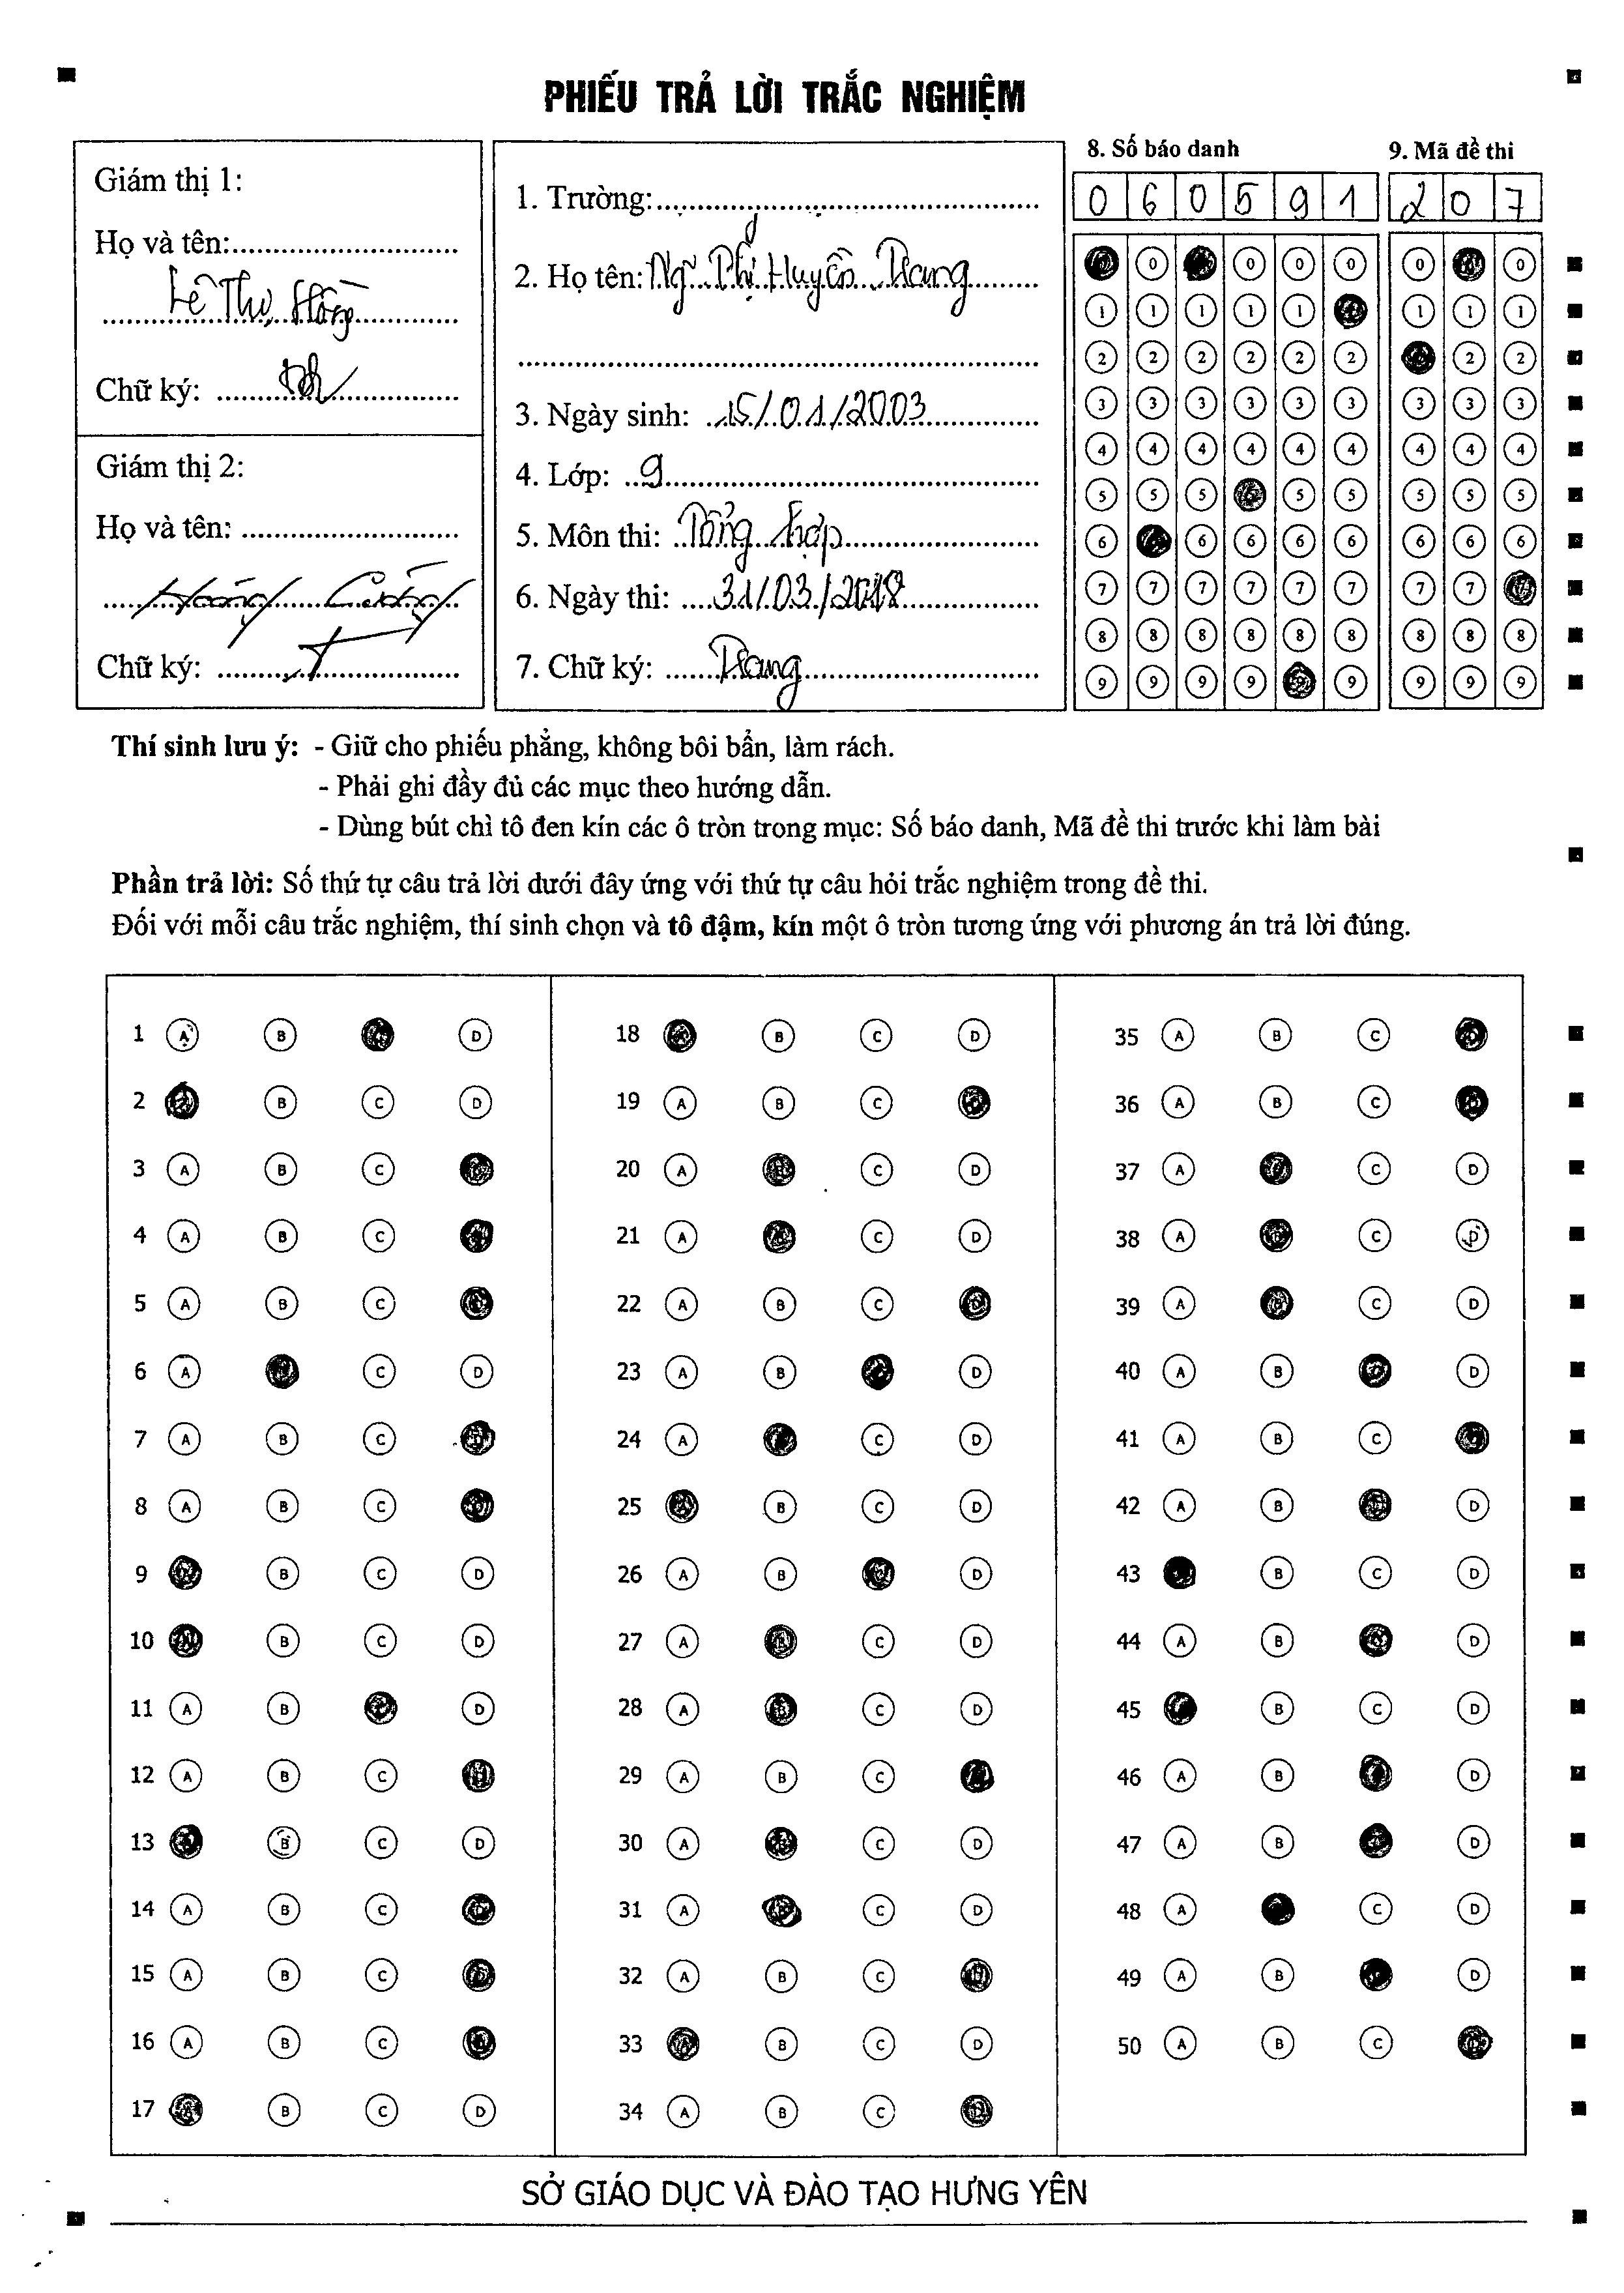 PHIẾU TRẢ LỜI TRẮC NGHIỆM
Giám thị 1:
Họ và tên:
Lê Thị Hồng
Chữ ký:
Giám thị 2:
Họ và tên:
Hoàng Cường
Chữ ký:
1. Trường:
2. Họ tên: Ng Thị Huyền Trang
3. Ngày sinh: 15/01/2003
4. Lớp: 9
5. Môn thi: Tổng hợp
6. Ngày thi: 31/03/2018
7. Chữ ký: Trang
8. Số báo danh
0 6 0 5 9 1
0 0 0 0
1 1 1 1 1
2 2 2 2 2 2
3 3 3 3 3 3
4 4 4 4 4 4
5 5 5 5 5
6 6 6 6 6
7 7 7 7 7 7
8 8 8 8 8 8
9 9 9 9 9 9
9. Mã đề thi
2 0 7
0 0
1 1 1
2 2
3 3 3
4 4 4
5 5 5
6 6 6
7 7
8 8 8
9 9 9
Thí sinh lưu ý: - Giữ cho phiếu phẳng, không bôi bẩn, làm rách.
- Phải ghi đầy đủ các mục theo hướng dẫn.
- Dùng bút chì tô đen kín các ô tròn trong mục: Số báo danh, Mã đề thi trước khi làm bài
Phần trả lời: Số thứ tự câu trả lời dưới đây ứng với thứ tự câu hỏi trắc nghiệm trong đề thi.
Đối với mỗi câu trắc nghiệm, thí sinh chọn và tô đậm, kín một ô tròn tương ứng với phương án trả lời đúng.
1 A B D
2 B C D
3 A B C
4 A B C
5 A B C
6 A C D
7 A B C D
8 A B C
9 B C D
10 B C D
11 A B D
12 A B C
13 B C D
14 A B C D
15 A B C
16 A B C
17 B C D
18 B C D
19 A B C
20 A C D
21 A C D
22 A B C D
23 A B D
24 A C D
25 A B C D
26 A B D
27 A B C D
28 A B C D
29 A B C
30 A C D
31 A C D
32 A B C
33 A B C D
34 A B C D
35 A B C
36 A B C
37 A C D
38 A C D
39 A B C D
40 A B D
41 A B C
42 A B D
43 B C D
44 A B D
45 B C D
46 A B D
47 A B D
48 A C D
49 A B D
50 A B C
SỞ GIÁO DỤC VÀ ĐÀO TẠO HƯNG YÊN